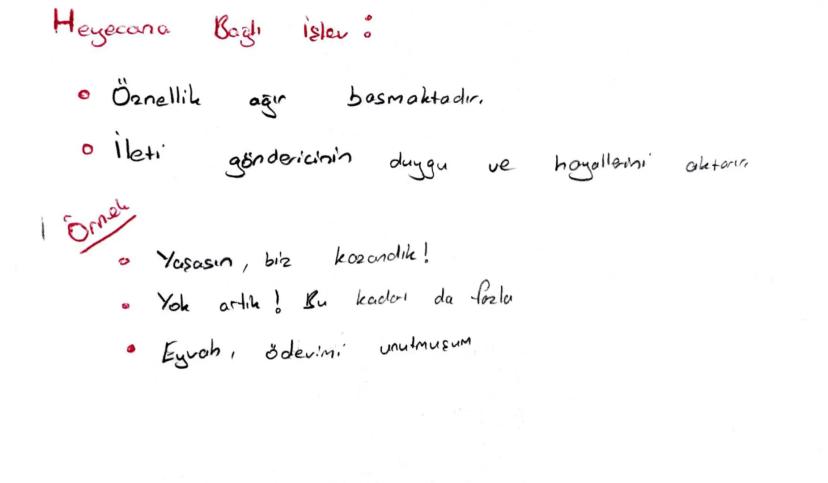 Heyecana Bağlı işlev :
Öznellik ağır basmaktadır.
İleti göndericinin duygu ve hayallerini aktarır.
Örnek
Yaşasın, biz kazandık!
Yok artık! Bu kadarı da fazla
Eyvah, ödevimi unutmuşum